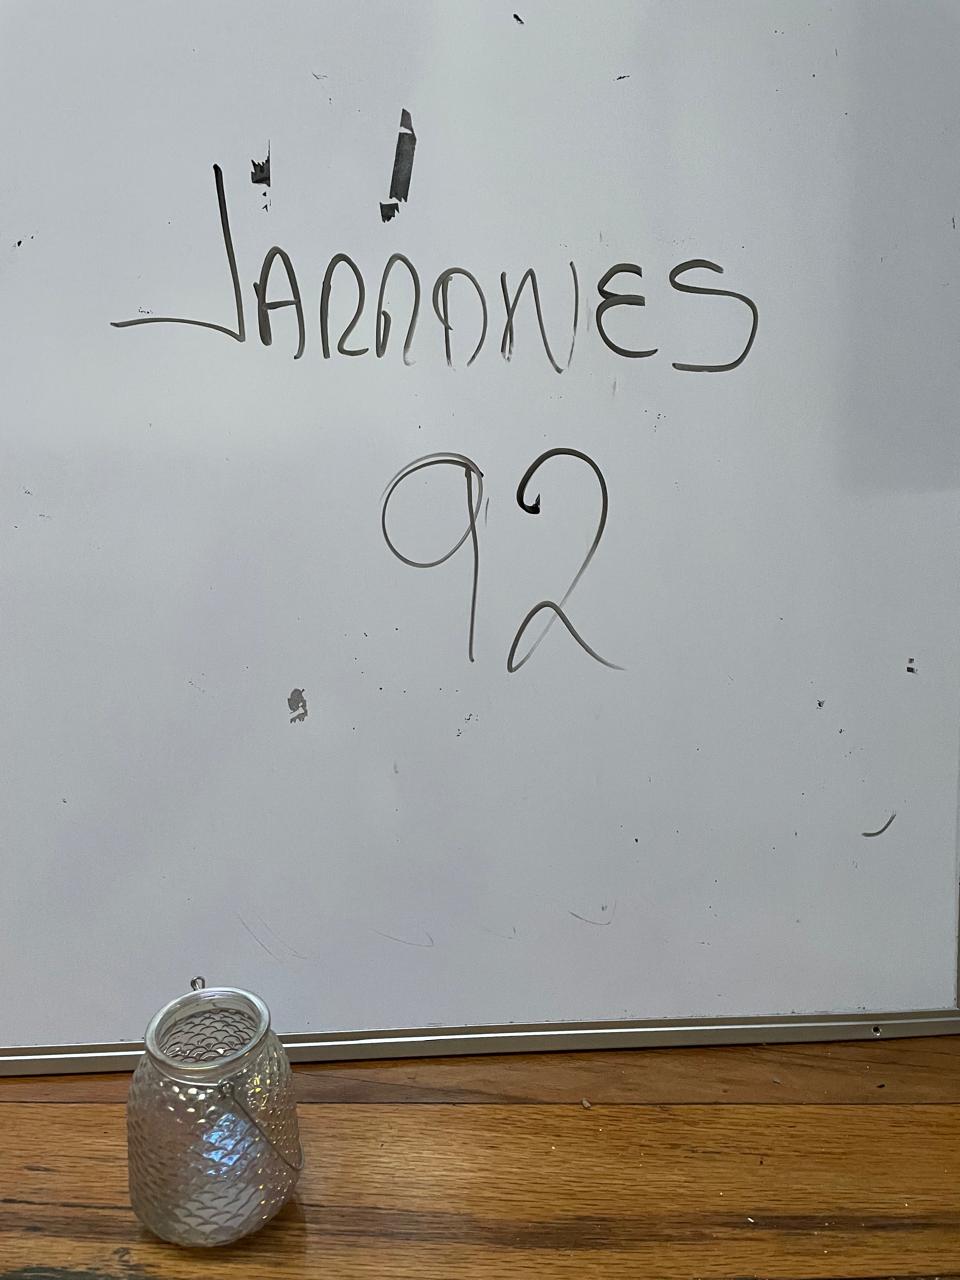 JARRONES
92